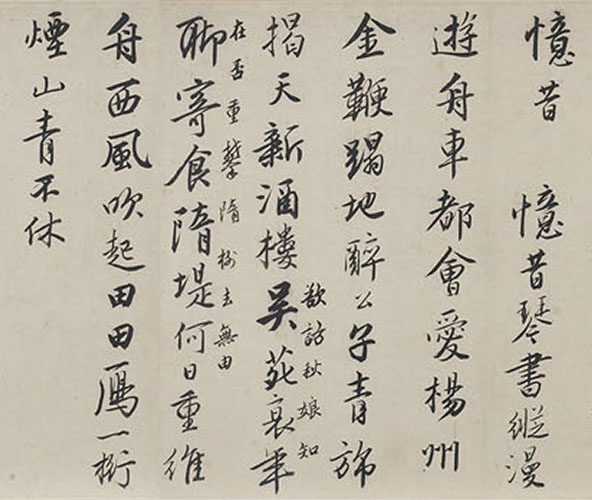 憶昔　憶昔琴書縱漫
遊舟車都會愛楊州
金鞭蹋地醉公子青旆
揭天新酒樓吳苑衰年
欲訪秋娘知
在否重攀隋樹去無由
聊寄食隋堤何日重維
舟西風吹起田田鴈一桁
煙山青不休